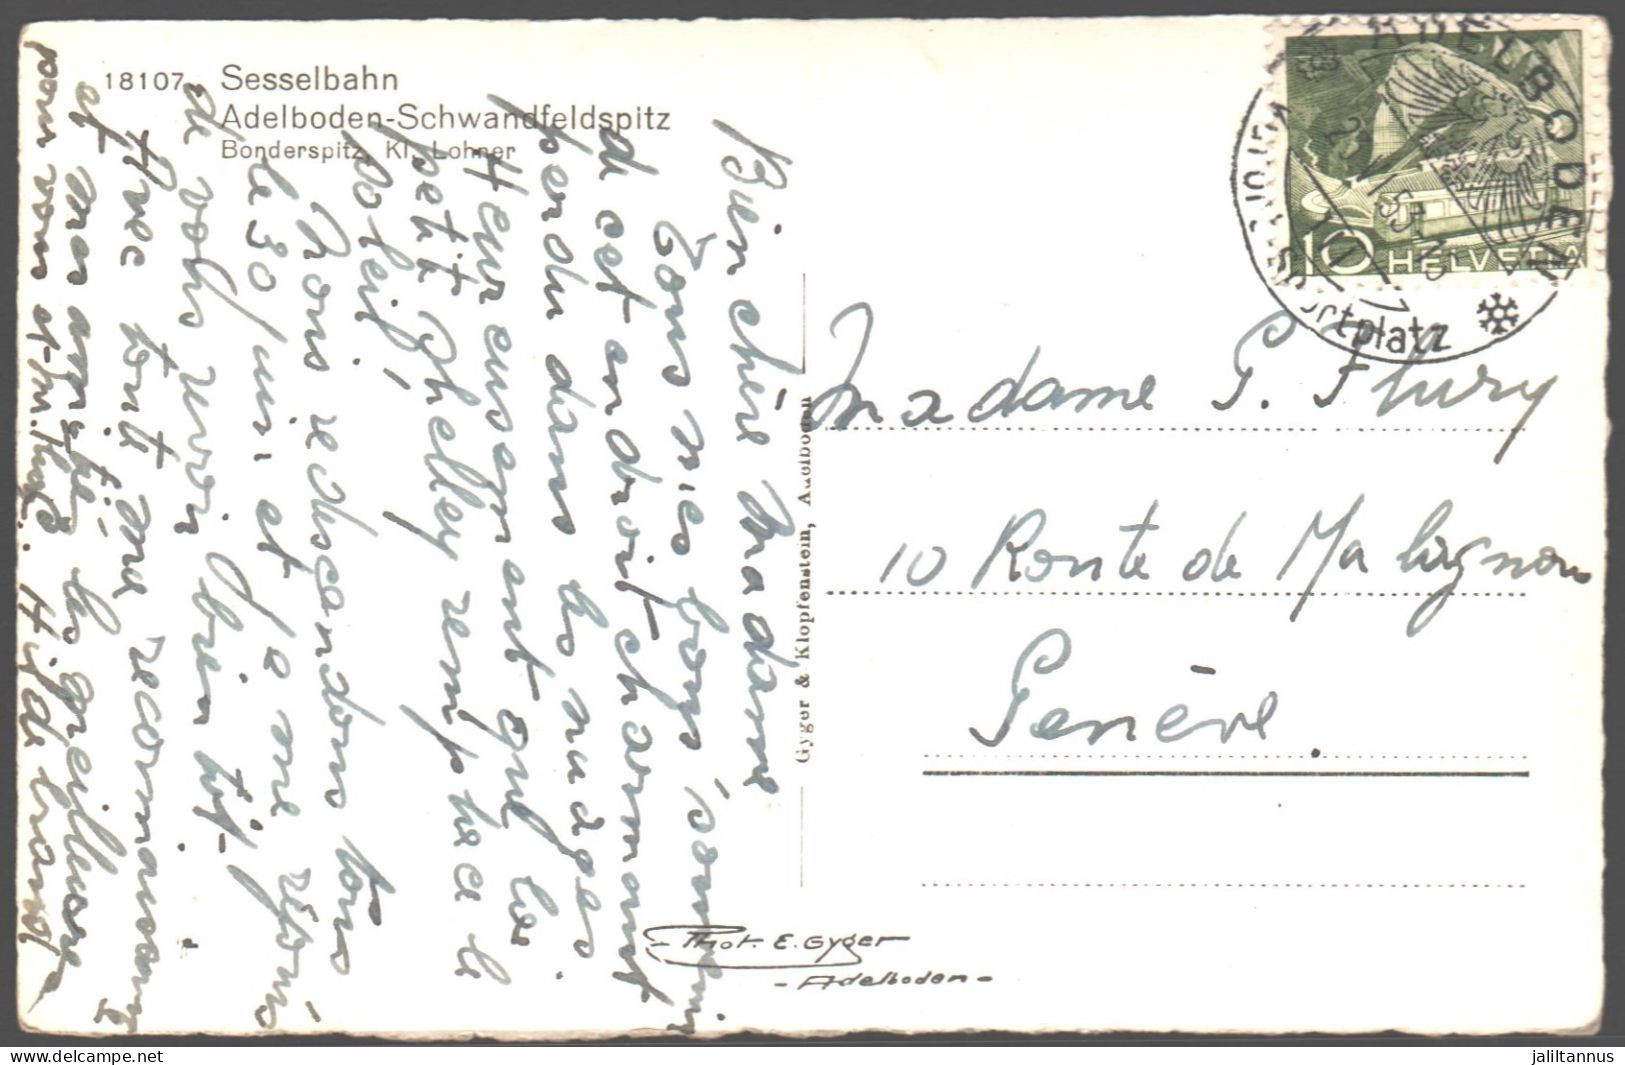 18107 Sesselbahn
Adelboden-Schwandfeldspitz
Bonderspitz, Kl. Lohner
Bien chère Madame
Tous mes bons souvenirs
de cet endroit charmant
perdu dans les nuages.
Heureusement que le
petit Shelley remplace le
soleil!
Nous redescendons tous
le 30/ et je me réjouis
de vous revoir bientôt.
Avec toute ma reconnaissance
et mon amitié, les meilleures
pour vous et M. Flury. Hildebrand
Gyger & Klopfenstein, Adelboden
Phot. E. Gyger
- Adelboden -
ADELBODEN
Sportplatz
10 HELVETIA
Madame G. Flury
10 Route de Malagnou
Genève.
jaliltannus